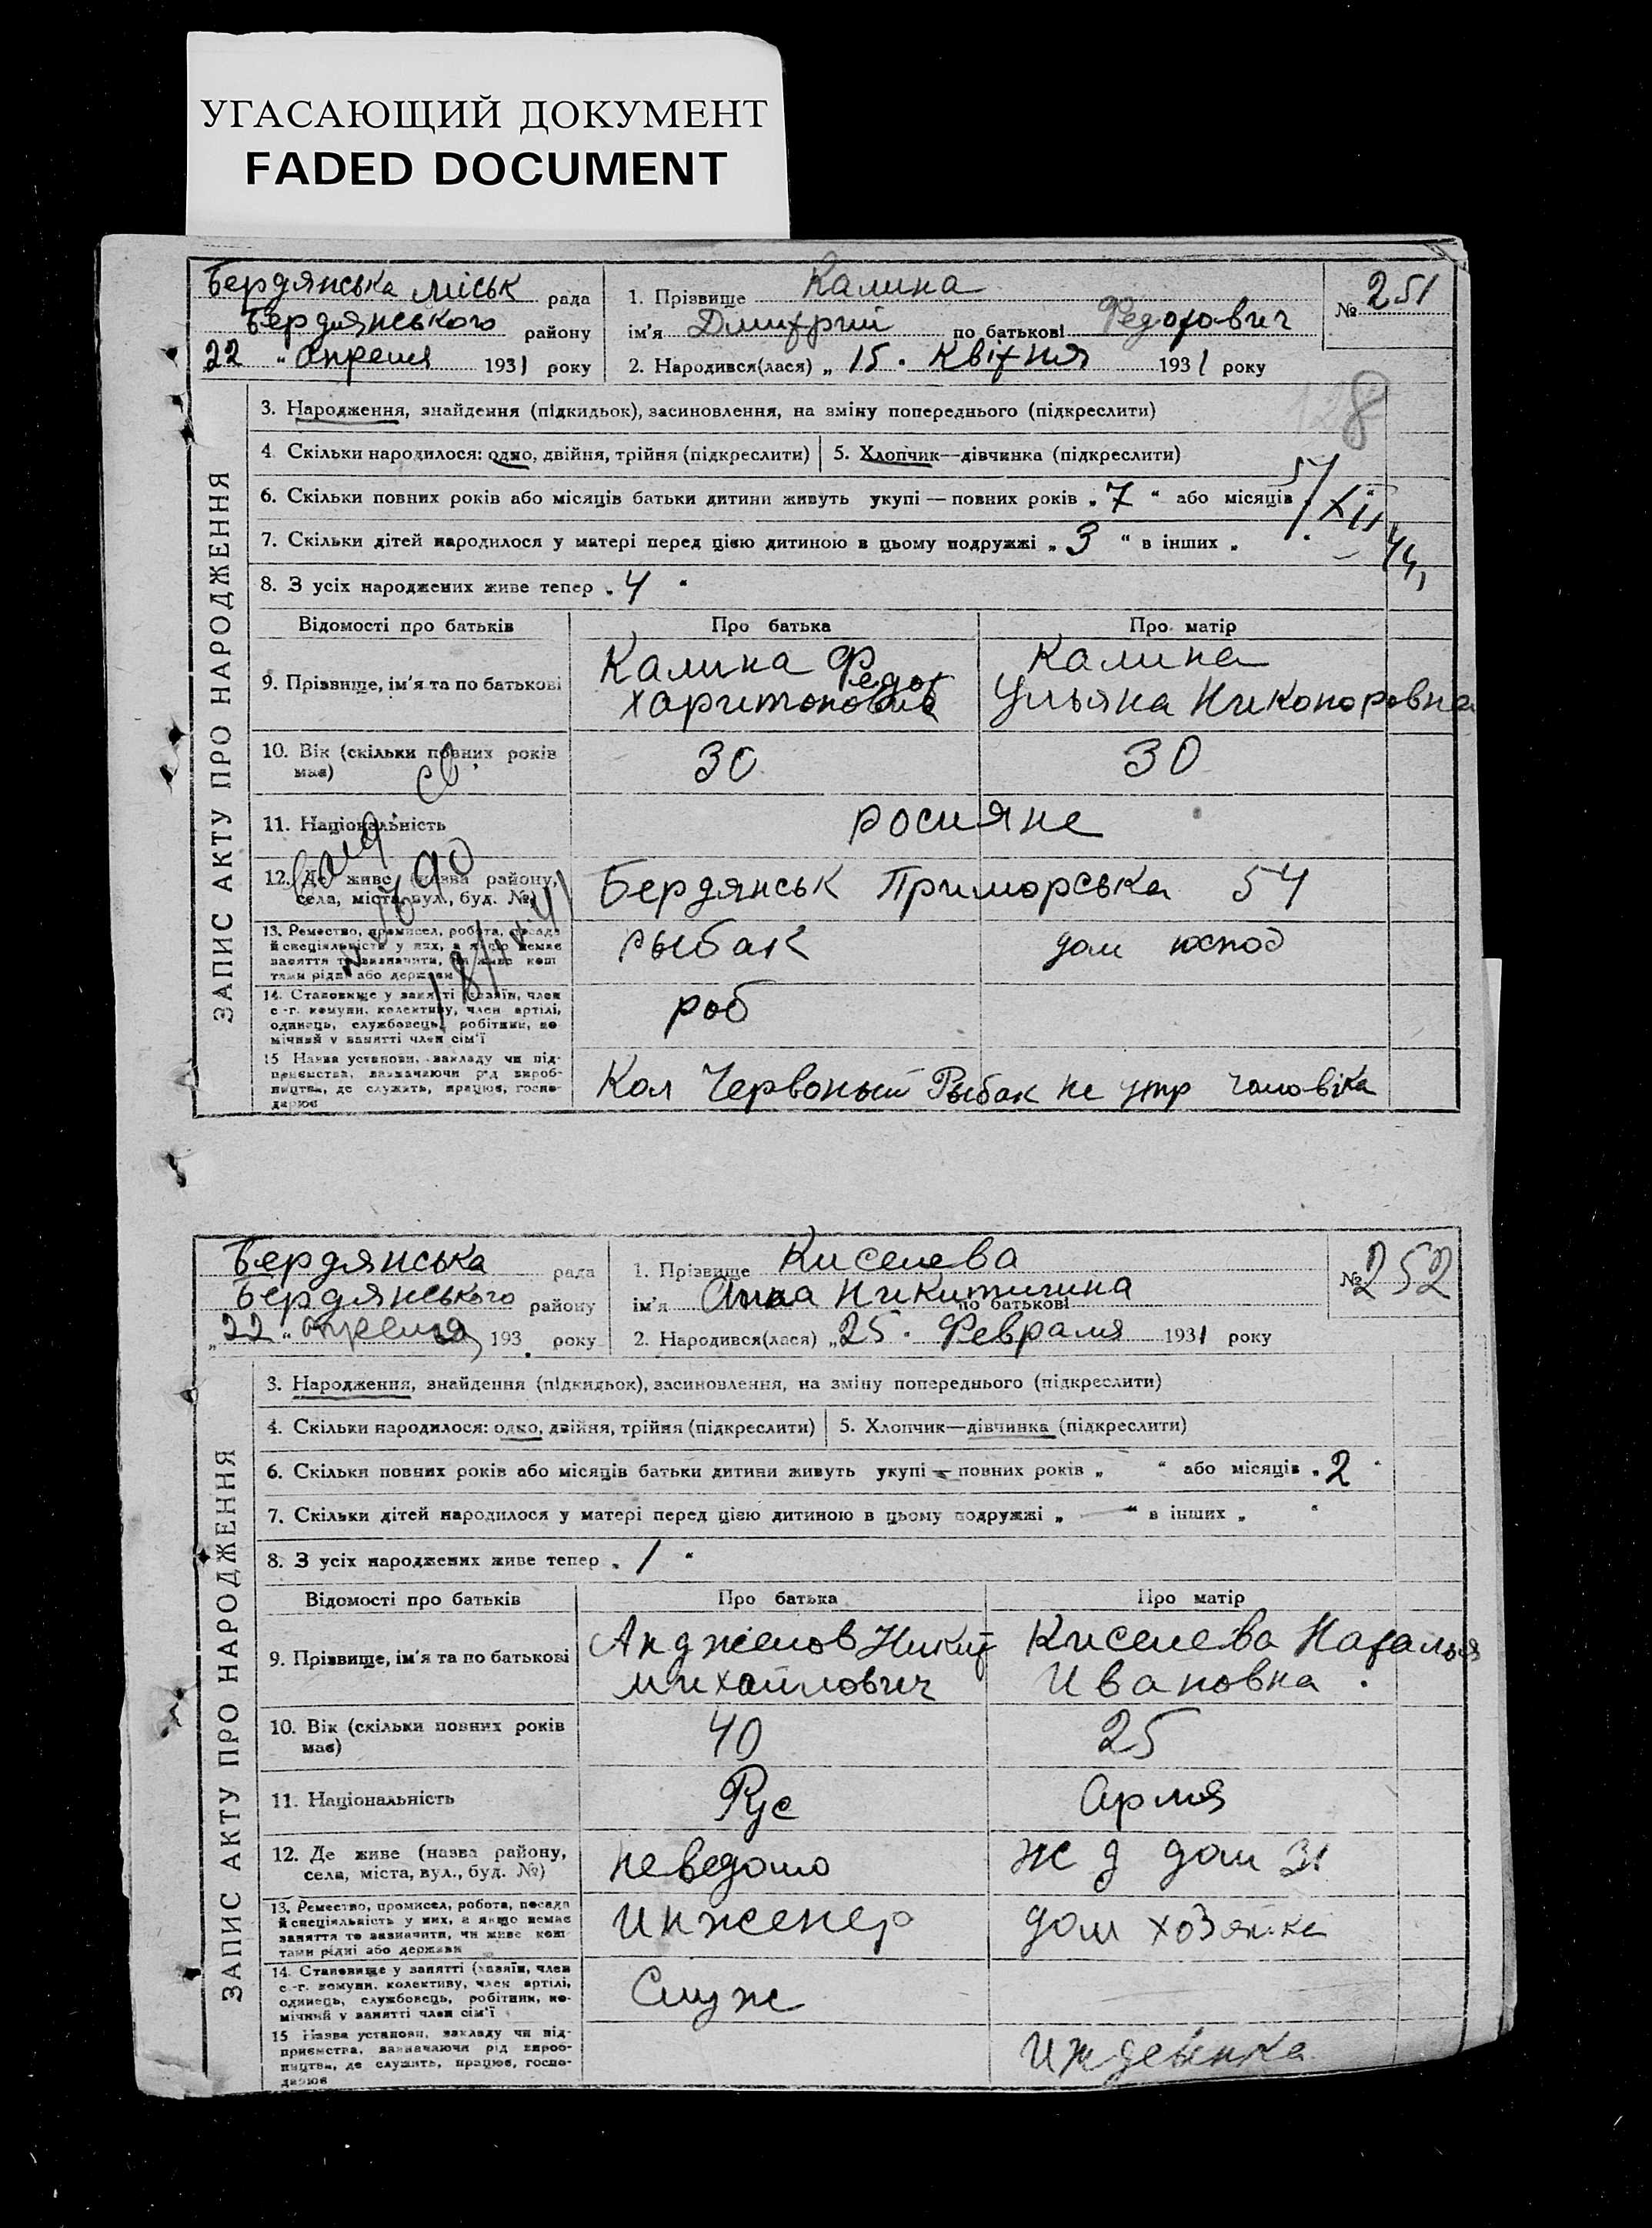 УГАСАЮЩИЙ ДОКУМЕНТ
FADED DOCUMENT
Бердянська міськ рада
Бердянського району
22 „ апреля 1931 року
1. Прізвище Калина
ім'я Дмитрий по батькові Федорович
2. Народився(лася) „ 15 . Квітня 1931 року
№ 251
128
ЗАПИС АКТУ ПРО НАРОДЖЕННЯ
3. Народження, знайдення (підкидьок), засиновлення, на зміну попереднього (підкреслити)
4. Скільки народилося: одно, двійня, трійня (підкреслити) 5. Хлопчик—дівчинка (підкреслити)
6. Скільки повних років або місяців батьки дитини живуть укупі — повних років „ 7 “ або місяців
7. Скільки дітей народилося у матері перед цією дитиною в цьому подружжі „ 3 “ в інших „
8. З усіх народжених живе тепер „ 4 “
Відомості про батьків Про батька Про матір
9. Прізвище, ім'я та по батькові
Калина Федор
Харитонович
Калина
Ульяна Никоноровна
10. Вік (скільки повних років
має)
30 30
11. Національність росияне
12. Де живе (назва району,
села, міста, вул., буд. №)
Бердянськ Приморська 54
13. Ремество, промисел, робота, посада
й спеціяльність у них, а якщо немає
заняття то зазначити, чи живе кош
тами рідні або держави
рыбак дом
14. Становище у занятті (хазяїн, член
с.-г. комуни, колективу, член артілі,
одинець, службовець, робітник, по
мічний у занятті член сім'ї
роб
15 Назва установи, закладу чи під-
приємства, зазначаючи рід вироб-
ництва, де служить, працює, госпо-
дарює
Кол Червоный Рыбак на утр чоловіка
Бердянська рада
Бердянського району
„ 22 “ апреля 193 року
1. Прізвище Киселева
ім'я Анна Никитична по батькові
2. Народився(лася) „ 25 . Февраля 1931 року
№ 252
ЗАПИС АКТУ ПРО НАРОДЖЕННЯ
3. Народження, знайдення (підкидьок), засиновлення, на зміну попереднього (підкреслити)
4. Скільки народилося: одно, двійня, трійня (підкреслити) 5. Хлопчик—дівчинка (підкреслити)
6. Скільки повних років або місяців батьки дитини живуть укупі — повних років „ “ або місяців „ 2 “
7. Скільки дітей народилося у матері перед цією дитиною в цьому подружжі „ — “ в інших „ “
8. З усіх народжених живе тепер „ 1 “
Відомості про батьків Про батька Про матір
9. Прізвище, ім'я та по батькові
Анджелов Никит
михайлович
Киселева Наталья
Ивановна
10. Вік (скільки повних років
має)
40 25
11. Національність Рус
12. Де живе (назва району,
села, міста, вул., буд. №)
неведомо ж д дом 31
13. Ремество, промисел, робота, посада
й спеціяльність у них, а якщо немає
заняття то зазначити, чи живе кош
тами рідні або держави
инженер дом хозяйка
14. Становище у занятті (хазяїн, член
с.-г. комуни, колективу, член артілі,
одинець, службовець, робітник, по-
мічний у занятті член сім'ї
Служ
15 Назва установи, закладу чи під-
приємства, зазначаючи рід вироб-
ництва, де служить, працює, госпо-
дарює